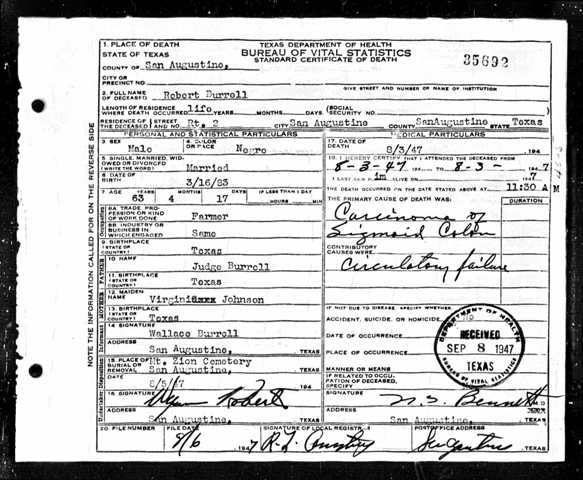 1. PLACE OF DEATH
STATE OF TEXAS
TEXAS DEPARTMENT OF HEALTH
BUREAU OF VITAL STATISTICS
STANDARD CERTIFICATE OF DEATH
35692
COUNTY OF San Augustine,
CITY OR
PRECINCT NO.
GIVE STREET AND NUMBER OR NAME OF INSTITUTION
2. FULL NAME
OF DECEASED Robert Burrell
LENGTH OF RESIDENCE
WHERE DEATH OCCURRED life YEARS MONTHS DAYS (SOCIAL
SECURITY NO.
RESIDENCE OF (STREET
THE DECEASED) AND NO. Rt. 2 CITY San Augustine COUNTY SanAugustine STATE Texas
PERSONAL AND STATISTICAL PARTICULARS
MEDICAL PARTICULARS
3. SEX
Male
4. COLOR
OR RACE Negro
17. DATE OF
DEATH 8/3/47 194
5. SINGLE, MARRIED, WID-
OWED OR DIVORCED
(WRITE WORD) Married
18. I HEREBY CERTIFY THAT I ATTENDED THE DECEASED FROM
8-3-47 8-3- 1947
6. DATE OF
BIRTH 3/16/83
I LAST SAW him ALIVE ON 7
7. AGE YEARS MONTHS DAYS IF LESS THAN 1 DAY
63 4 17 HOURS MIN
THE DEATH OCCURRED ON THE DATE STATED ABOVE AT 11:30 A M
8A. TRADE, PRO-
FESSION OR KIND
OF WORK DONE Farmer
THE PRIMARY CAUSE OF DEATH WAS: DURATION
Carcinoma of
Sigmoid Colon
8B. INDUSTRY OR
BUSINESS IN
WHICH ENGAGED Same
9. BIRTHPLACE
(STATE OR
COUNTRY) Texas
CONTRIBUTORY
CAUSES WERE:
circulatory failure
FATHER
10. NAME
Judge Burrell
11. BIRTHPLACE
(STATE OR
COUNTRY) Texas
MOTHER
12. MAIDEN
NAME Virginiaxxx Johnson
13. BIRTHPLACE
(STATE OR
COUNTRY) Texas
IF NOT DUE TO DISEASE, SPECIFY WHETHER:
ACCIDENT, SUICIDE, OR HOMICIDE
14. SIGNATURE
Wallace Burrell
DATE OF OCCURRENCE
ADDRESS
San Augustine, TEXAS
PLACE OF OCCURRENCE
DEPARTMENT OF HEALTH
RECEIVED
SEP 8 1947
TEXAS
BUREAU OF VITAL STATISTICS
15. PLACE OF
BURIAL OR
REMOVAL Mt. Zion Cemetery
San Augustine, TEXAS
MANNER OR MEANS
DATE
8/5/47 194
IF RELATED TO OCCU-
PATION OF DECEASED,
SPECIFY
16. SIGNATURE
SIGNATURE
N. S. Bennett
ADDRESS
San Augustine, TEXAS
ADDRESS
San Augustine, TEXAS
20. FILE NUMBER FILE DATE SIGNATURE OF LOCAL REGISTRAR POSTOFFICE ADDRESS
9/6 1947 San Augustine TEXAS
NOTE THE INFORMATION CALLED FOR ON THE REVERSE SIDE